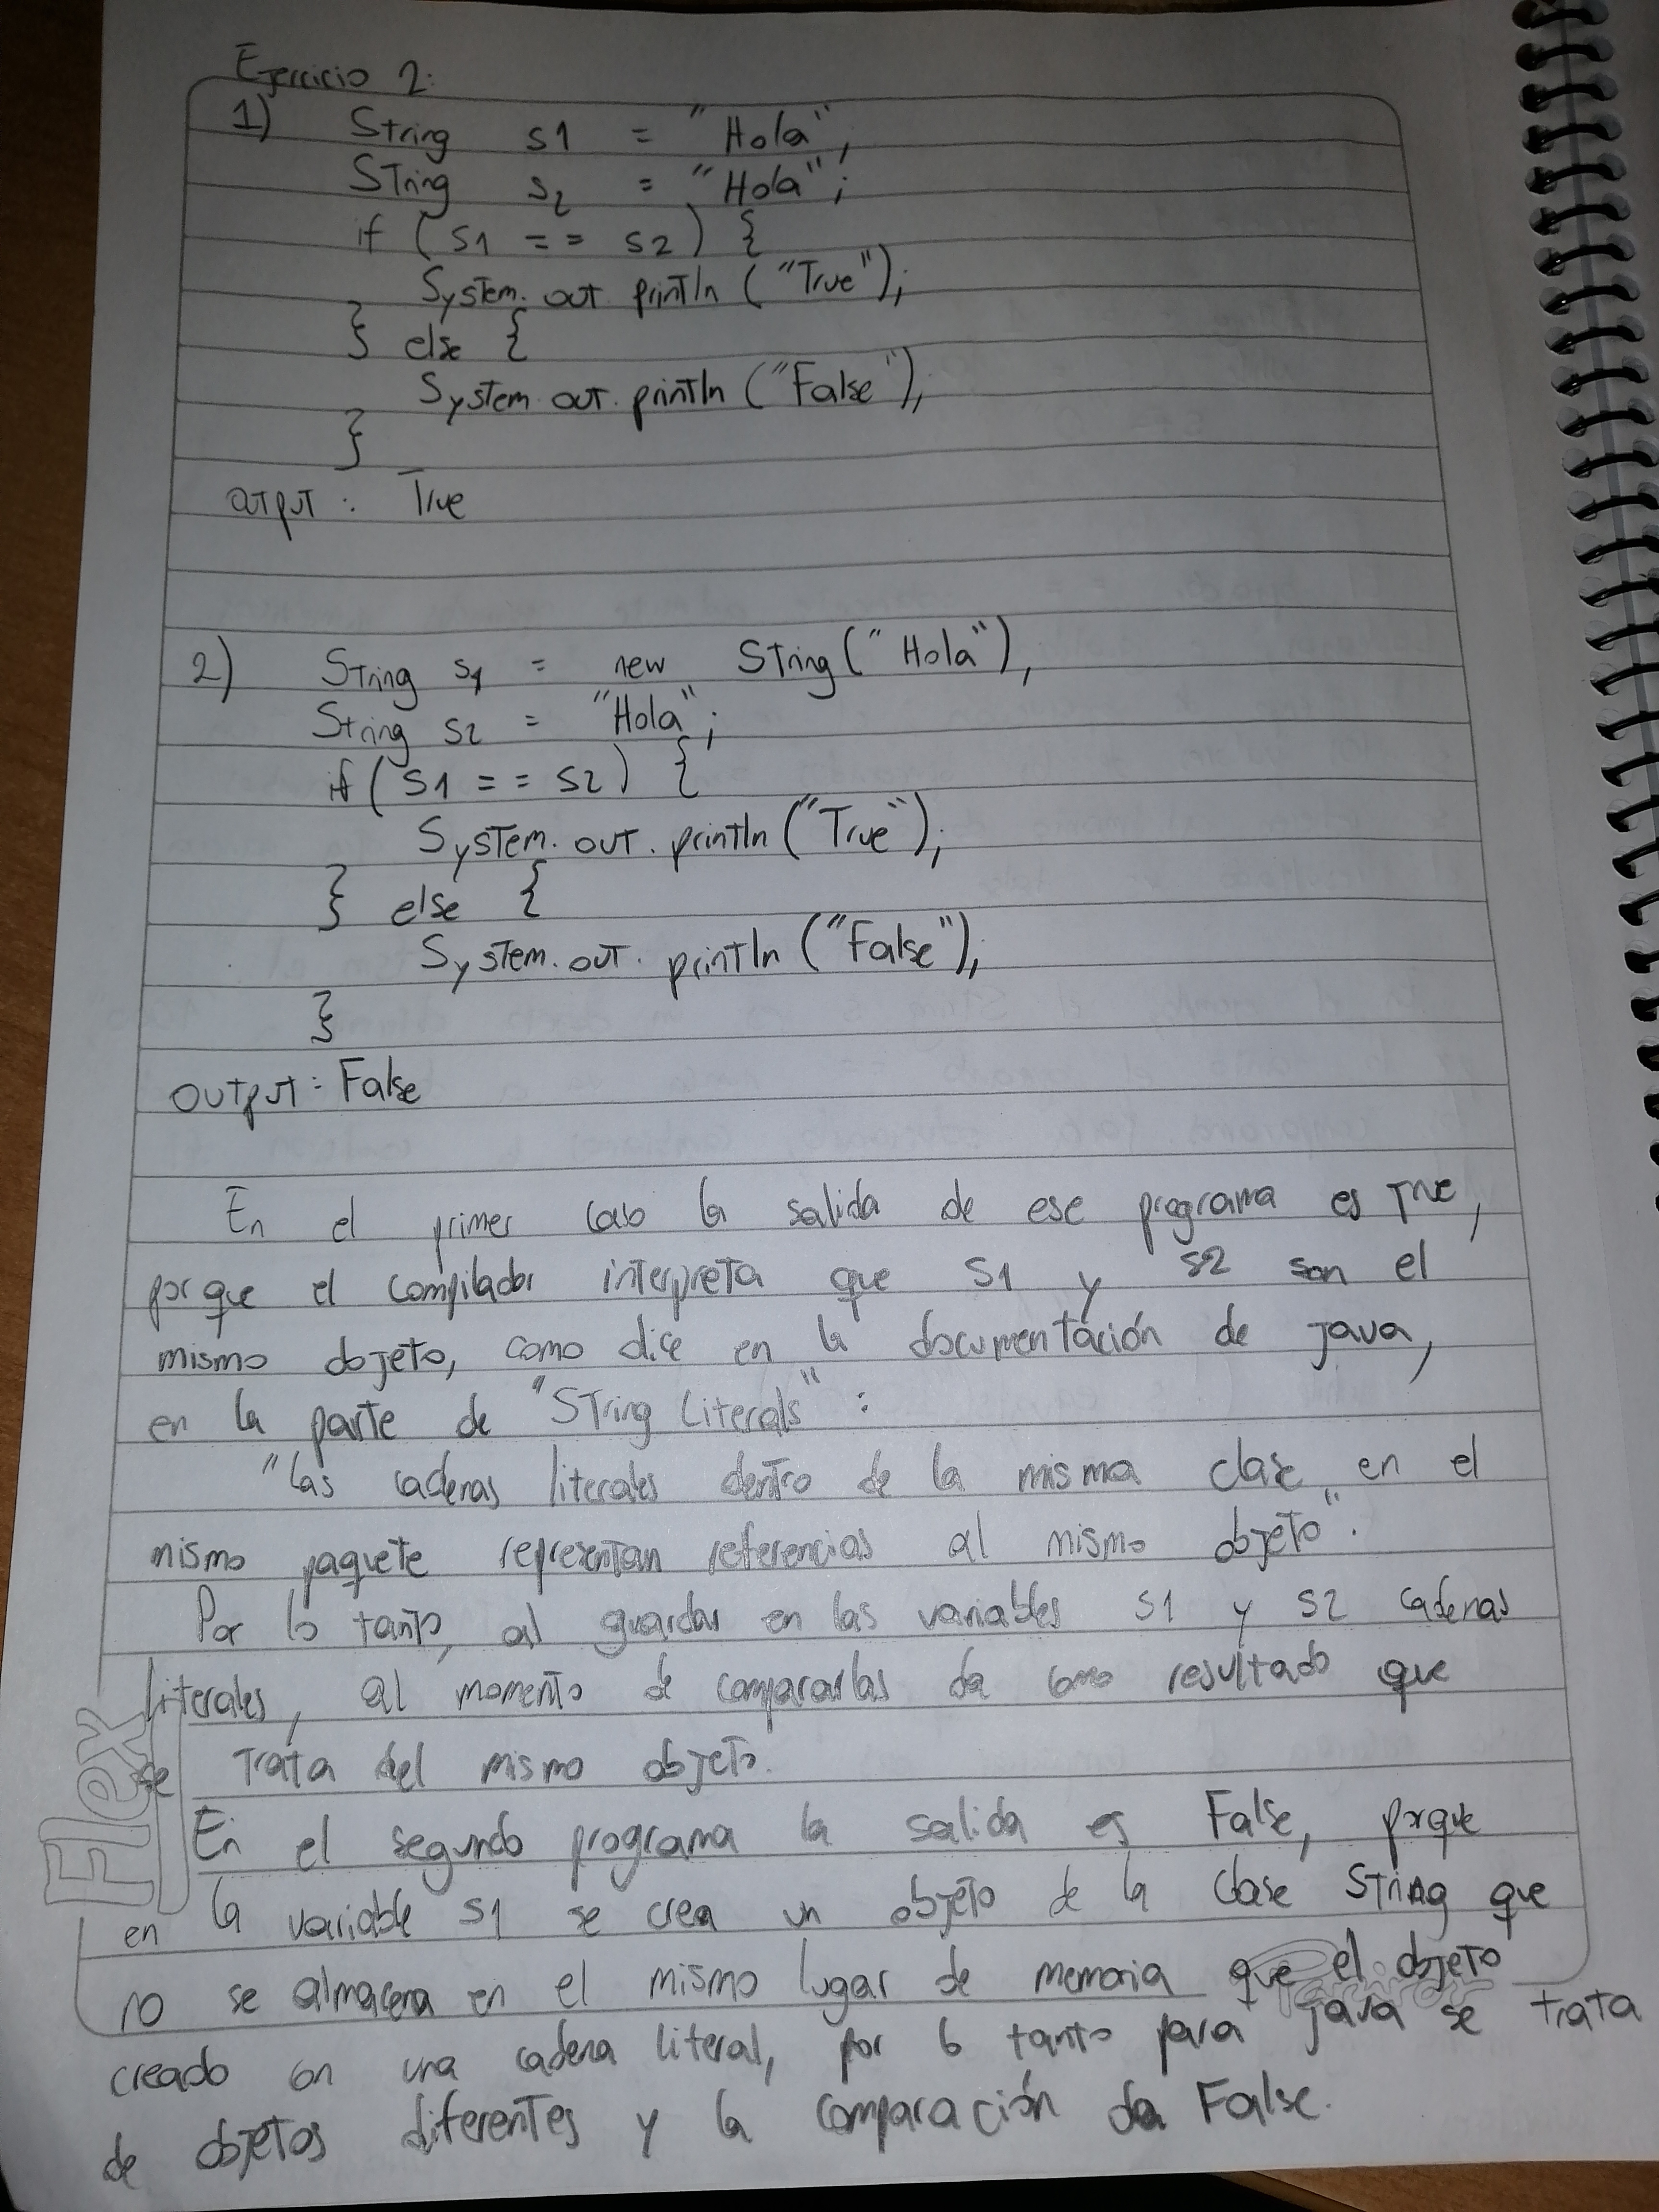 Ejercicio 2:
1) String s1 = "Hola";
String s2 = "Hola";
if (s1 == s2) {
System.out.println("True");
} else {
System.out.println("False");
}
output: True
2) String s1 = new String("Hola");
String s2 = "Hola";
if (s1 == s2) {
System.out.println("True");
} else {
System.out.println("False");
}
output: False
En el primer caso la salida de ese programa es True,
porque el compilador interpreta que s1 y s2 son el
mismo objeto, como dice en la documentación de java,
en la parte de "String Literals":
"las cadenas literales dentro de la misma clase en el
mismo paquete representan referencias al mismo objeto".
Por lo tanto, al guardar en las variables s1 y s2 cadenas
literales, al momento de compararlas da como resultado que
se trata del mismo objeto.
En el segundo programa la salida es False, porque
en la variable s1 se crea un objeto de la clase String que
no se almacena en el mismo lugar de memoria que el objeto
creado con una cadena literal, por lo tanto para java se trata
de objetos diferentes y la comparación da False.
Flex